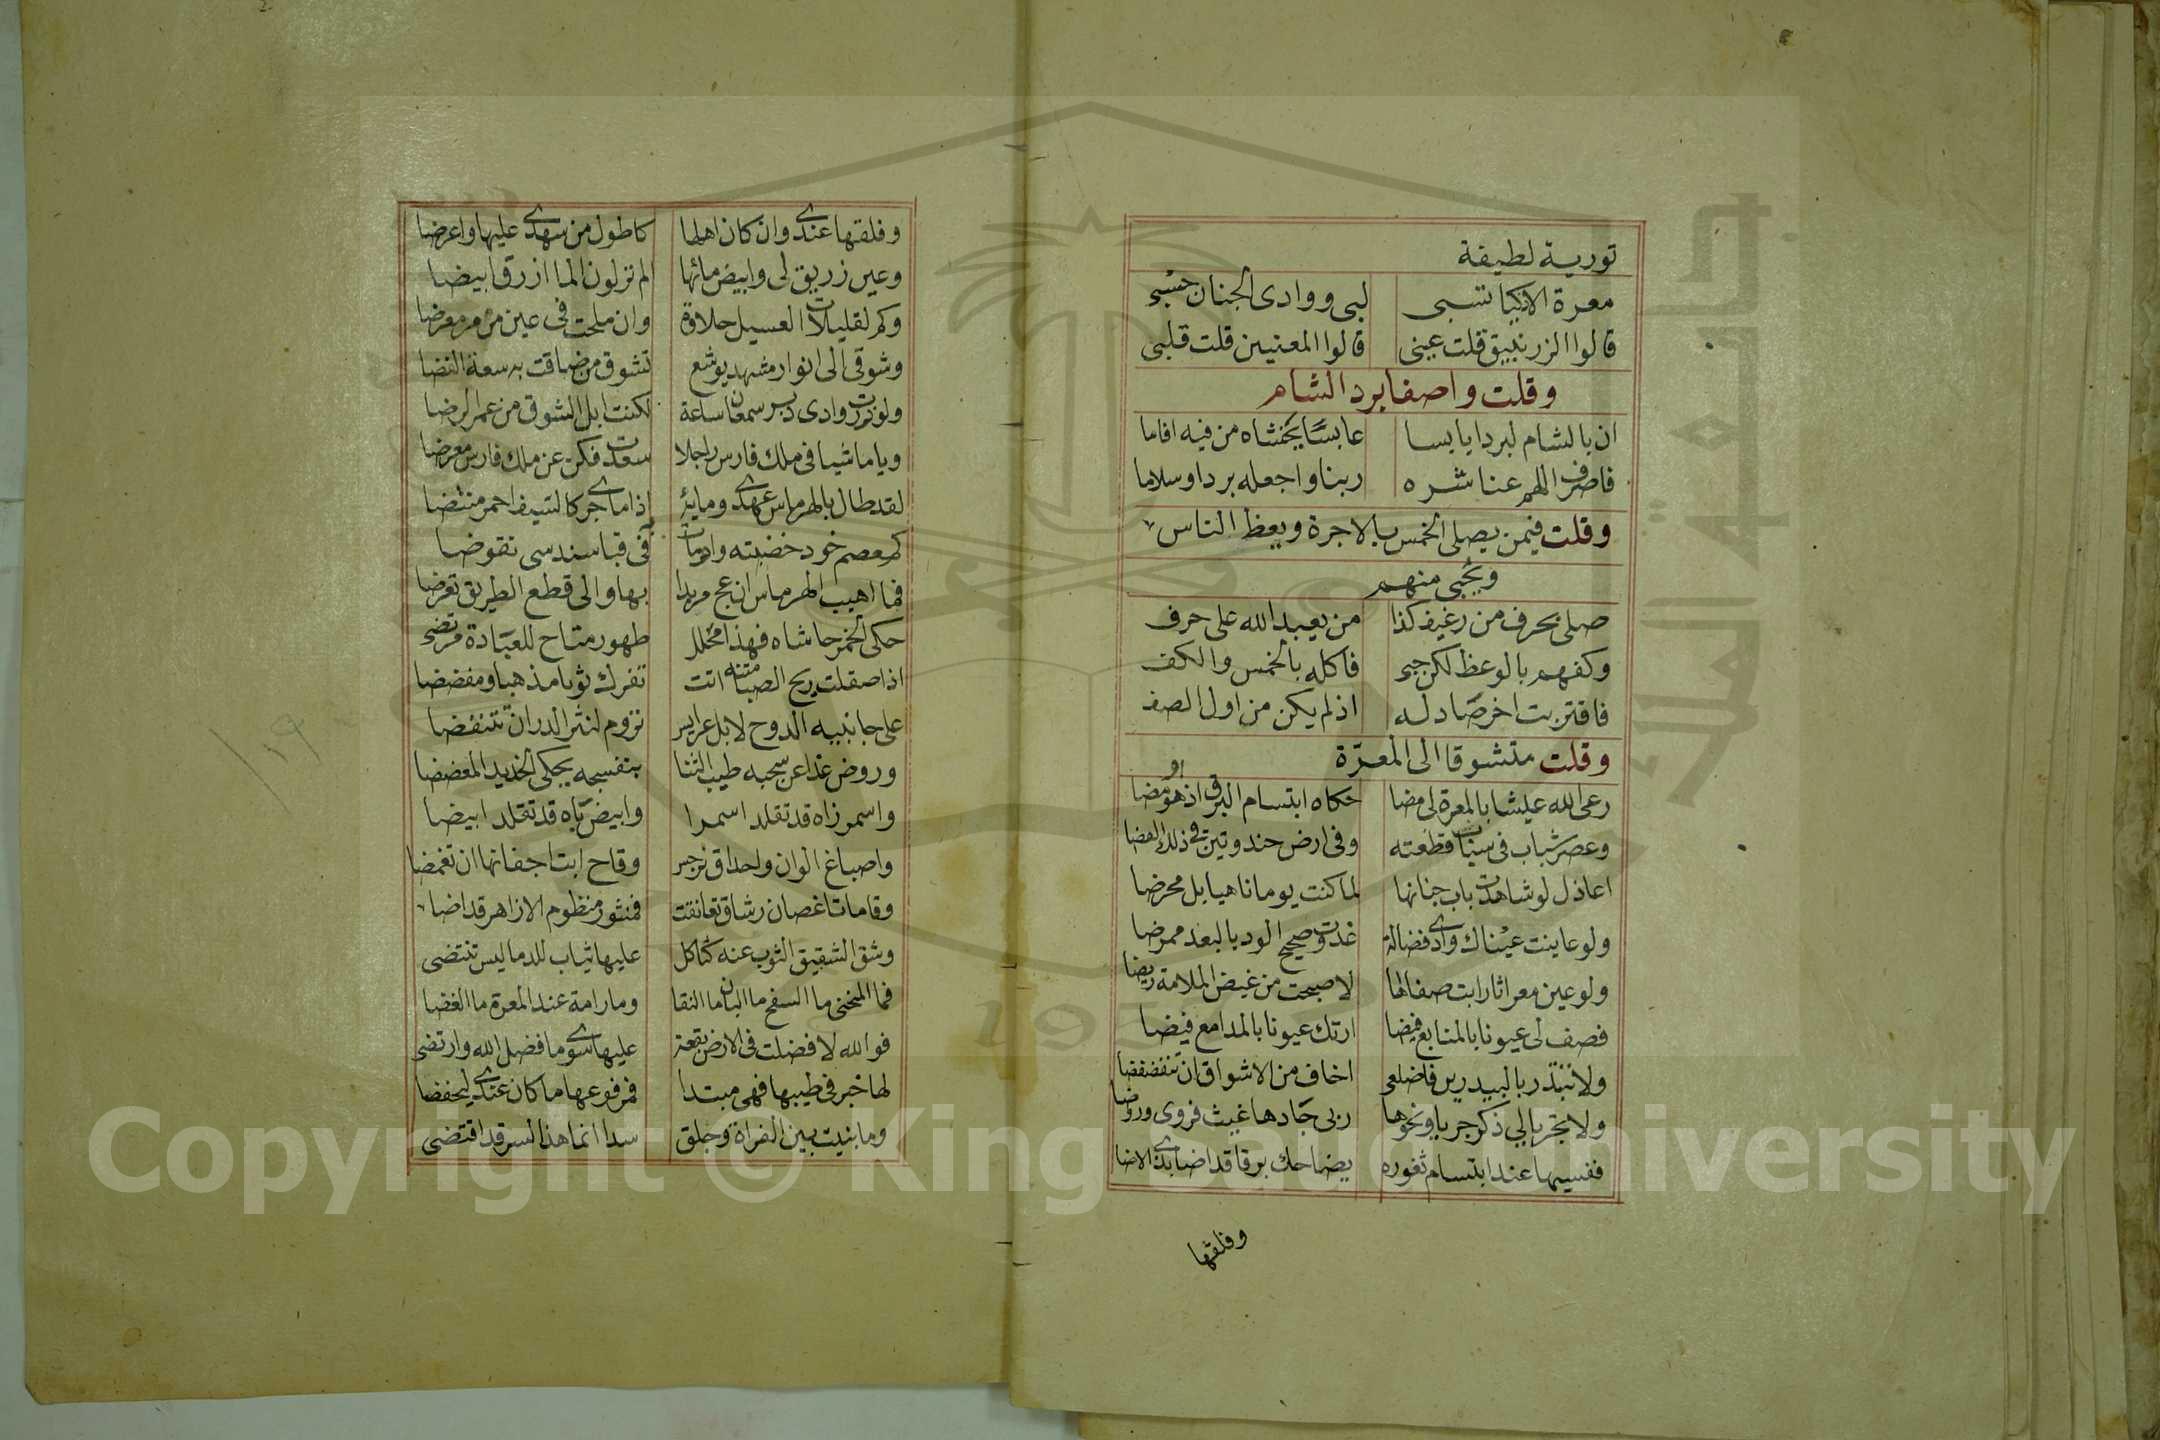 تورية لطيفة
معرة الاذكيا تسبى لبى ووادى الجنان حسبى
قالوا الزرنبيق قلت عينى قالوا المعنيين قلت قلبى
وقلت واصفا برد الشام
ان بالشام لبردا يابسا عابسًا يخشاه من فيه اقاما
فاصرف اللهم عنا شره ربنا واجعله بردا وسلاما
وقلت فيمن يصلى الخمس بالاجرة ويعظ الناس
ويجبى منهم
صلى بحرف من رغيف كذا من يعبد الله على حرف
وكفهم بالوعظ لكن جبى فاكله بالخمس والكف
فاقتربت اخرصّاد له اذ لم يكن من اول الصف
وقلت متشوقا الى المعرّة
رعى الله عيشا بالمعرة لى مضا حكاه ابتسام البرق اذ هو ومضا
وعصر شباب فى سياث قطعته وفى ارض حندوتين فى ذلك الفضا
اعاذل لو شاهدت باب جنانها لما كنت يوما ناهيا بل محرضا
ولو عاينت عيناك وادى فضالة غدوت صحيح الود بالبعد ممرضا
ولو عين معراثا رايت صفالها لاصبحت من غيض الملامة ريضا
فصف لى عيونا بالمنابع فيضا ارتك عيونا بالمدامع فيضا
ولا تبتدر بالبيدرين فاضلعى اخاف من الاشواق ان تنفضفضا
ولا تجر بالى ذكر جربا ونحوها ربى جادها غيث فروى وروضا
ففسيها عند ابتسام ثغوره يضاحك برقا قد اضا بذى الاضا
وفلقها
وفلقها عندى وان كان اهلها كاطول من سهدى عليها واعرضا
وعين زريق لى وابيض مائها الم تر لون الما ازرق ابيضا
وكم لقليلات العسيل حلاوة وان ملحت فى عين من مر معرضا
وشوقى الى انوار مشهد يوشع تشوق من ضاقت به سعة الفضا
ولو زرت وادى دير سمعان ساعة لكنت ابل الشوق من عمر الرضا
ويا ماشيا فى ملك فارس راجلا سعدت فكن عن ملك فارس معرضا
لقد طال بالهرماس عهدى ومايه اذا ما جرى كالسيف احمر منتضا
كمعصم خود خضبته وادمات فى قبا سندسى نقوضا
فما اهيب الهرماس ان عج مزبدا بها والى قطع الطريق تعرضا
حكى الخمر حاشاه فهذا محلل طهور متاح للعبادة مرتضى
اذا صقلت ريح الصبا متنه اتت تفرك ثوبا مذهبا ومفضضا
على جانبيه الدوح لا بل عرايس تروم لنثر الدر ان تتنفضا
وروض غدا عن سحبه طيب الثنا بنفسجه يحكى الخديد المعضضا
واسمر زاه قد تقلد اسمرا وابيض باه قد تقلد ابيضا
واصباغ الوان واحداق نرجس وقاح ابت اجفانها ان تغمضا
وقامات اغصان رشاق تعانقت فمنثور منظوم الازاهر قد اضا
وشق الشقيق الثوب عنه كثاكل عليها ثياب للدما ليس تنتضى
فما المنحنى ما السفح ما البان ما النقا وما رامة عند المعرة ما الغضا
فوالله لا فضلت فى الارض بقعة عليها سوى ما فضل الله وارتضى
لها خبر فى طيبها فهى مبتدا فمرفوعها ما كان عندى ليخفضا
وما بنيت بين الفراة وجلق سدا انما هذا لسر قد اقتضى
Copyright © King Saud University